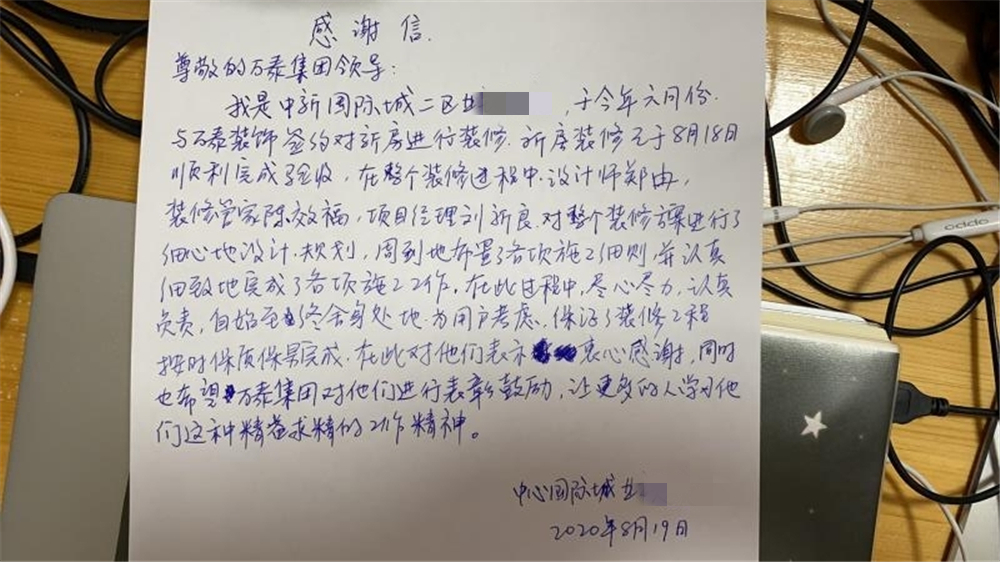 感谢信.
尊敬的万泰集团领导:
我是中新国际城二区业 ,于今年六月份.
与万泰装饰签约对新房进行装修.新房装修已于8月18日
顺利完成验收,在整个装修过程中.设计师郑由,
装修管家陈效福,项目经理刘新良.对整个装修方案进行了
细心地设计.规划,周到地布置了各项施工细则.并认真
细致地完成了各项施工工作.在此过程中,尽心尽力,认真
负责,自始至终舍身处地.为用户考虑.保证了装修工程
按时保质保量完成.在此对他们表示衷心感谢,同时
也希望万泰集团对他们进行表彰鼓励,让更多的人学习他
们这种精益求精的工作精神。
中心国际城业
2020年8月19日
oppo